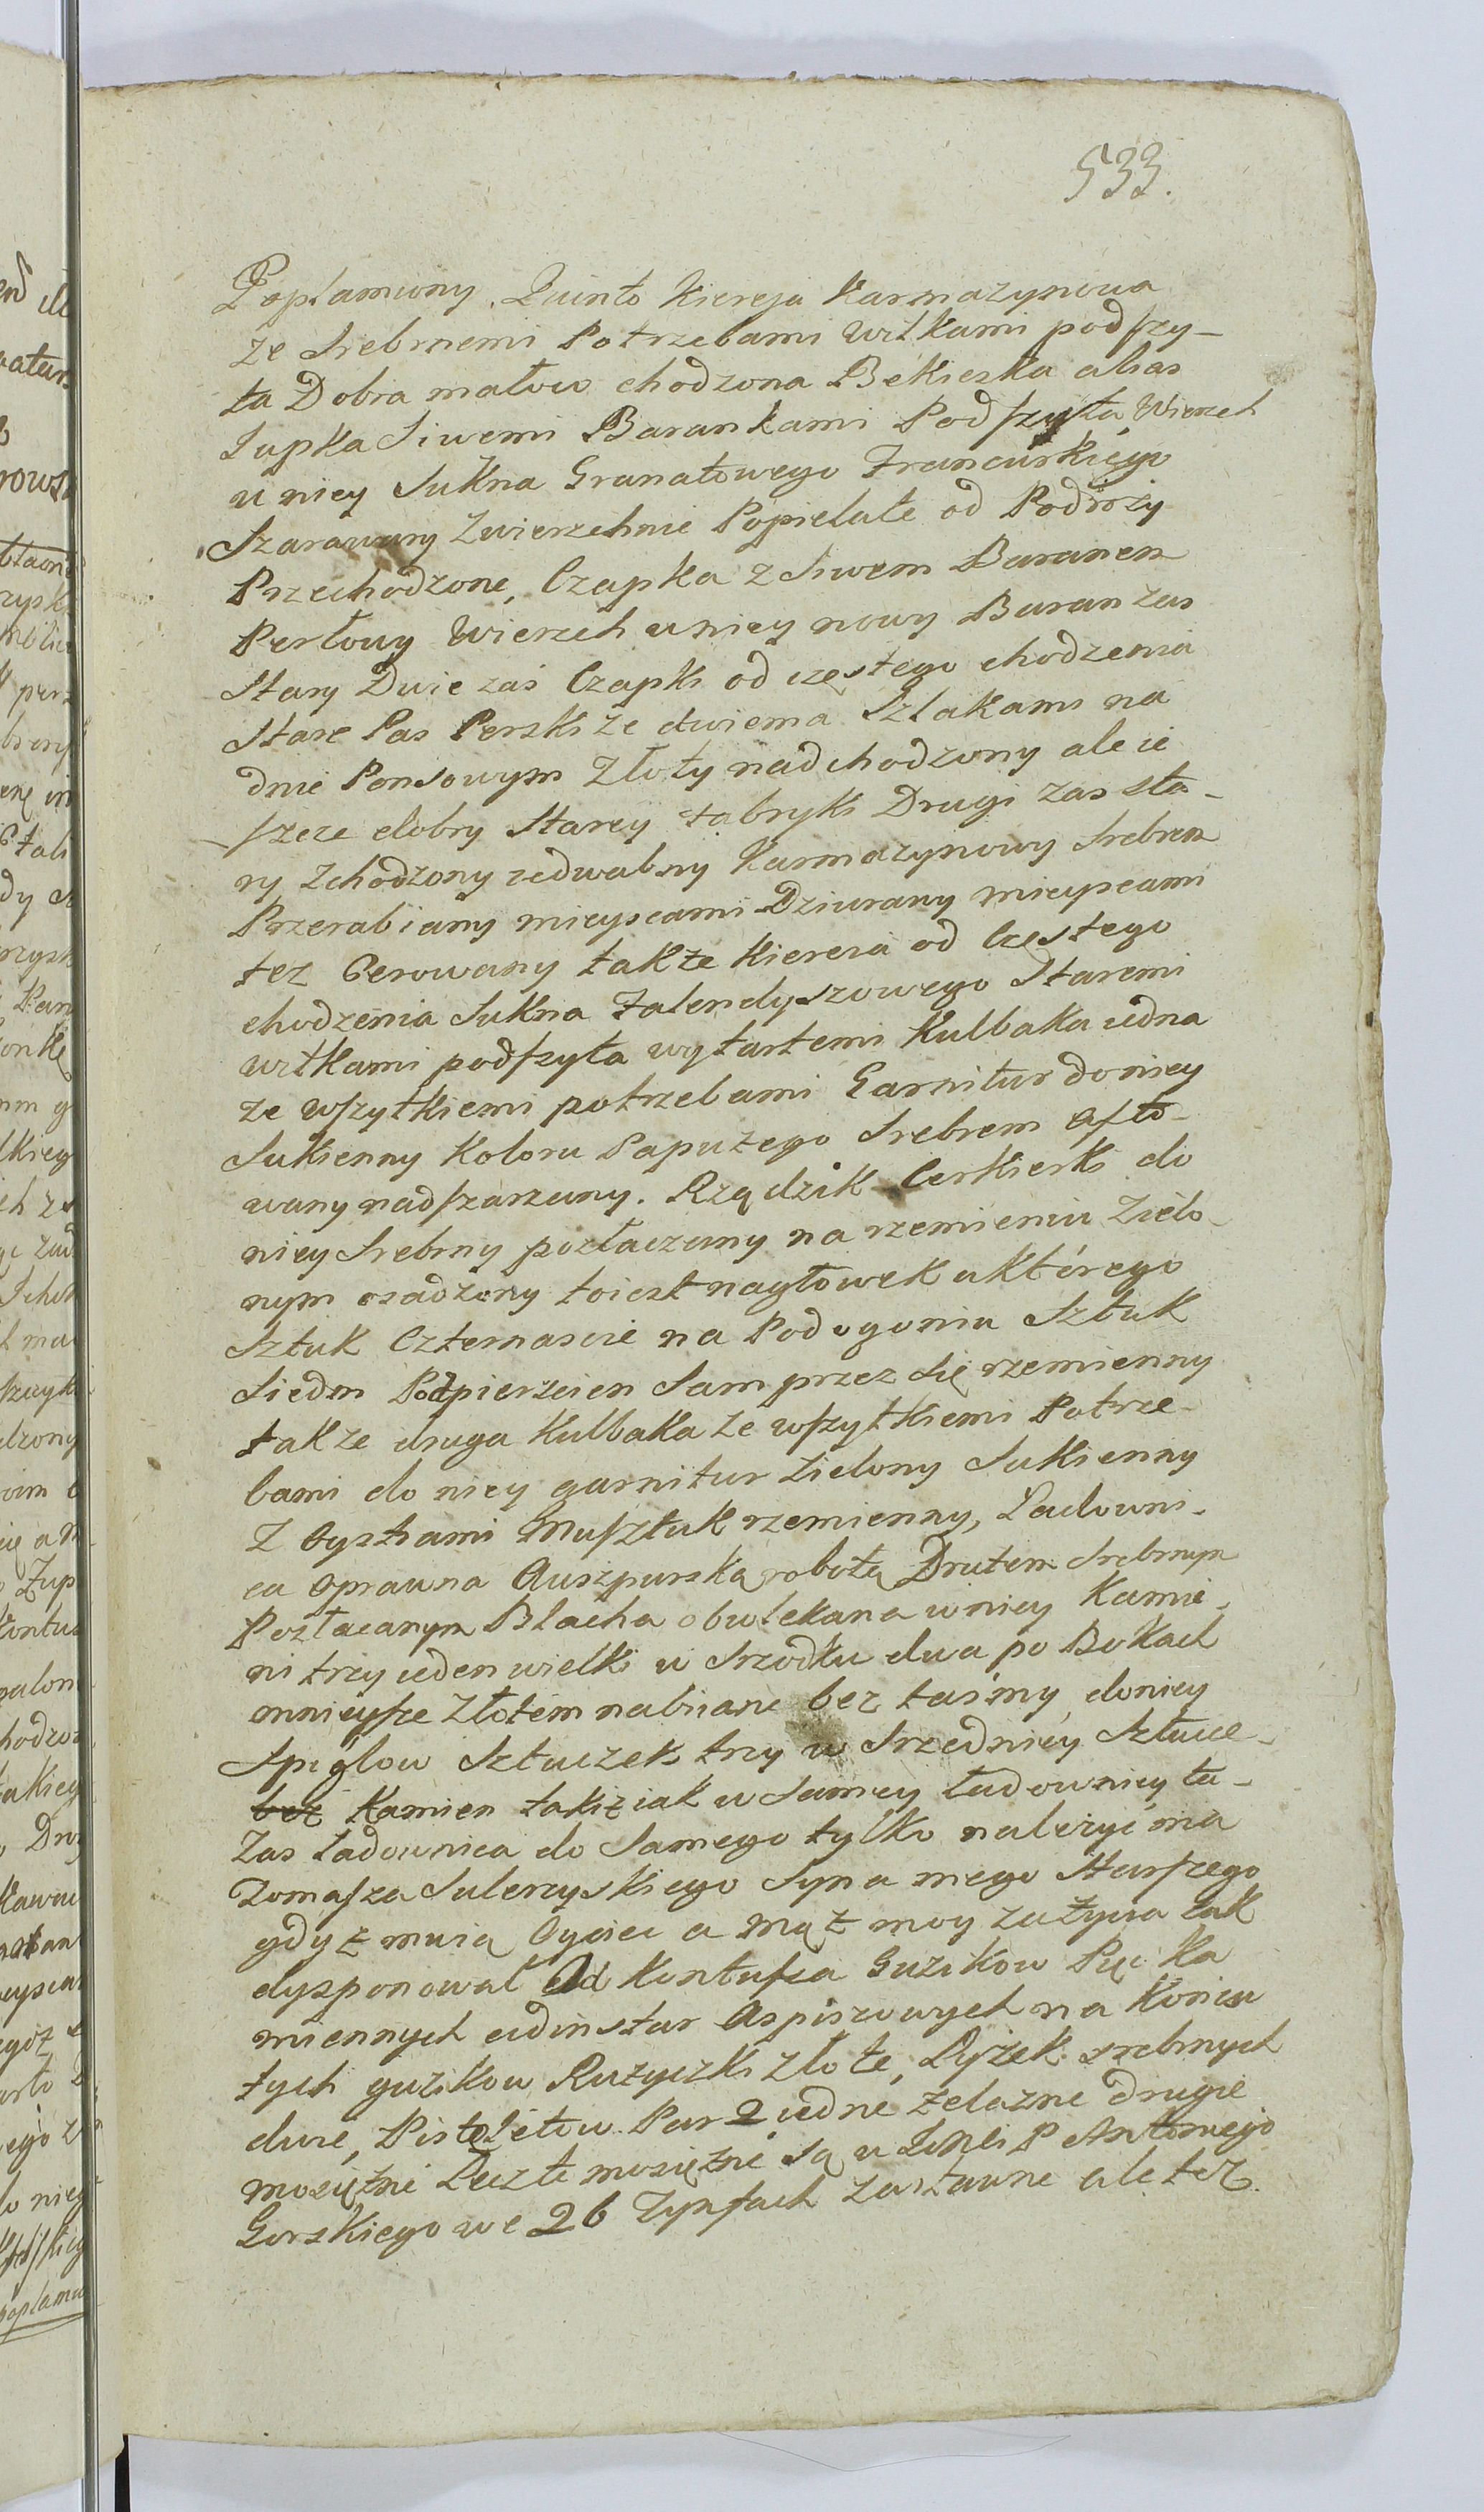 533.
Poplamiony. Quinto Kiereja Karmazynowa
ze Srebrnemi Potrzebami Wilkami podszy-
ta Dobra małow chodzona Bekieszka alias
Jupka Siwemi Barankami Podszyta Wierzch
u niey Sukna Granatowego Francuskiego
Szarawary Zwierzchnie Popielate od Podroży
Przechodzone, Czapka z Siwem Baranem
Perłowy Wierzch u niey nowy Baran zas
Stary Dwie zaś Czapki od częstego chodzenia
Stare Pas Perski ze dwiema Szlakami na
dnie Ponsowym Złoty nadchodzony ale ie
szcze dobry Starey fabryki Drugi zas sta-
ry Zchodzony iedwabny Karmazynowy Srebrem
Przerabiany mieyscami Dziurany mieyscami
tez Cerowany także Kiereia od Częstego
chodzenia Sukna Falendyszowego Staremi
wilkami podszyta wytartemi Kulbaka iedna
ze wszytkiemi potrzebami Garnitur do niey
Sukienny Koloru Papużego Srebrem afto-
wany nadszarzany. Rządzik Cerkieski do
niey Srebrny pozłaczany na rzemieniu Zielo-
nym osadzony toiest nagłowek u którego
Sztuk Czternascie na Podogoniu Sztuk
Siedm Podpiersien Sam przez Się rzemienny
także druga Kulbaka ze wszytkiemi Potrze-
bami do niey garnitur Zielony Sukienny
Z Musztuk rzemienny, Ladowni-
ca oprawna Auszpurską robotą Drutem Srebrnym
Pozłacanym Blacha obwlekana w niey Kamie-
ni trzy ieden wielki w Srzodku dwa po Bokach
mnieysze Złotem nabiiane bez taśmy, do niey
Spiglow Sztuczek trzy w Srzedniey Sztuce
bez Kamien takiz iak u Samey ładownicy ta-
Zas ładownica do Samego tylko należyć ma
Tomasza Sulerzyskiego Syna mego Starszego
gdyż Oyciec a Mąż moy za życia tak
dysponował Od Kontusza Guzikow Pięć Ka
miennych adinstar Aspisowych na Koncu
tych guzikow Ruzyczki złote, Łyżek srebrnych
dwie, Pistoletow Par 2 iedne żelazne drugie
mosiężne Leczte mosiężne są u P Antoniego
Gorskiego we 26 Tynfach Zastawne ale też